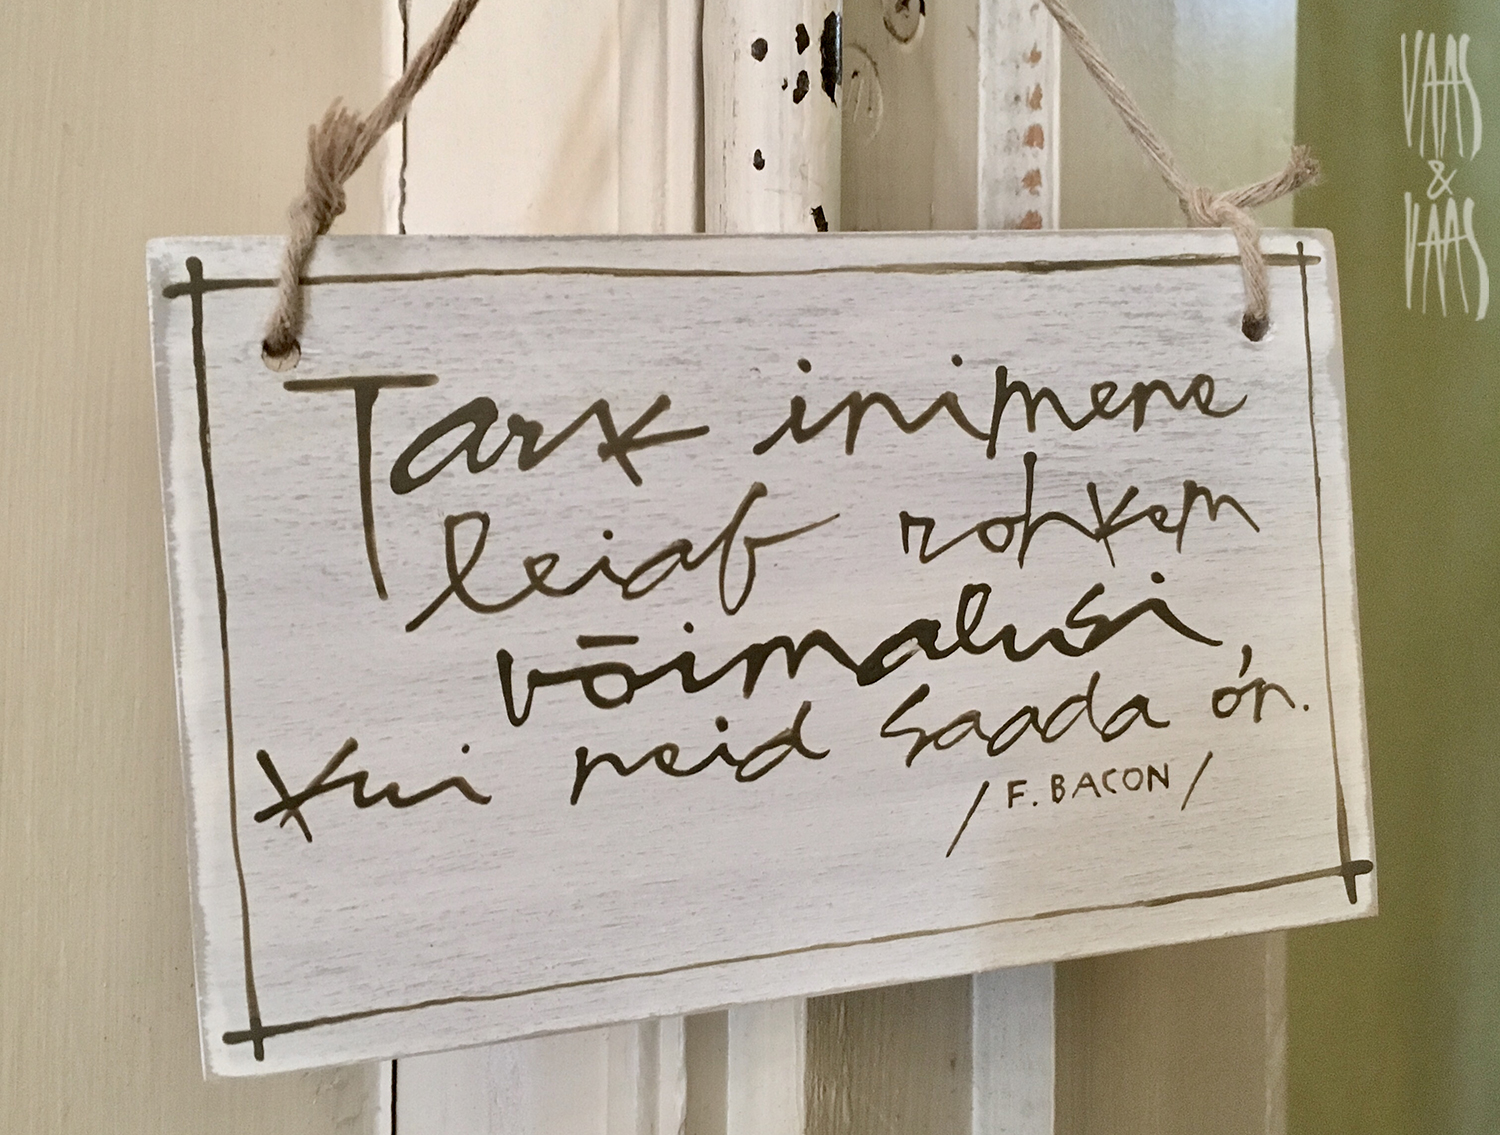 Tark inimene
leiab rohkem
võimalusi,
kui neid saada on.
/F. BACON/
VAAS
&
VAAS